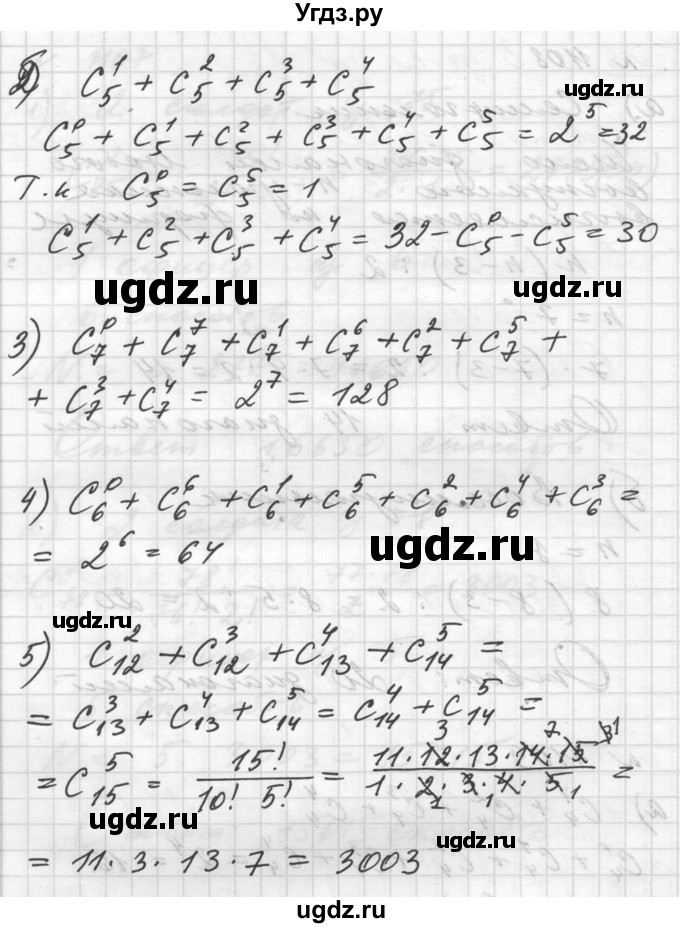 Угдз.ру
2) C₅¹ + C₅² + C₅³ + C₅⁴
ugdz.ru
C₅⁰ + C₅¹ + C₅² + C₅³ + C₅⁴ + C₅⁵ = 2⁵ = 32
Т.к C₅⁰ = C₅⁵ = 1
C₅¹ + C₅² + C₅³ + C₅⁴ = 32 - C₅⁰ - C₅⁵ = 30
ugdz.ru ugdz.ru
3) C₇⁰ + C₇⁷ + C₇¹ + C₇⁶ + C₇² + C₇⁵ +
+ C₇³ + C₇⁴ = 2⁷ = 128
4) C₆⁰ + C₆⁶ + C₆¹ + C₆⁵ + C₆² + C₆⁴ + C₆³ =
= 2⁶ = 64
ugdz.ru
ugdz.ru
5) C₁₂² + C₁₂³ + C₁₃⁴ + C₁₄⁵ =
= C₁₃³ + C₁₃⁴ + C₁₄⁵ = C₁₄⁴ + C₁₄⁵ =
= C₁₅⁵ = 15! / 10! 5! = 11·12·13·14·15 / 1·2·3·4·5 =
ugdz.ru ugdz.ru
= 11·3·13·7 = 3003
ugdz.ru